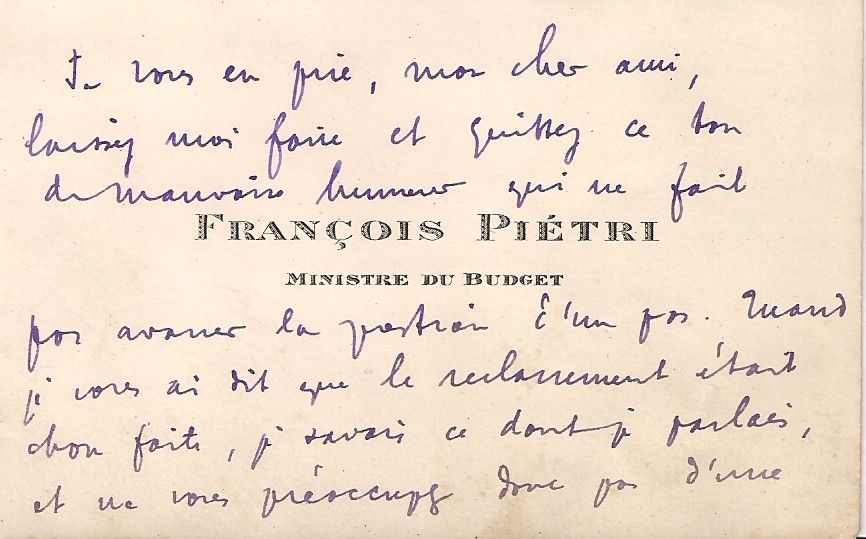 Je vous en prie, mon cher ami,
laissez moi faire et quittez ce ton
de mauvaise humeur qui ne fait
FRANÇOIS PIÉTRI
MINISTRE DU BUDGET
pas avancer la question d'un pas. Quand
je vous ai dit que le reclassement était
chose faite, je savais ce dont je parlais,
et ne vous préoccupez donc pas d'une